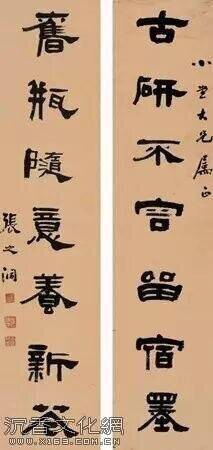 小大兄屬正
古研不容留宿墨
舊瓶隨意養新花
張之洞
沉香文化網
www.x163.com.cn